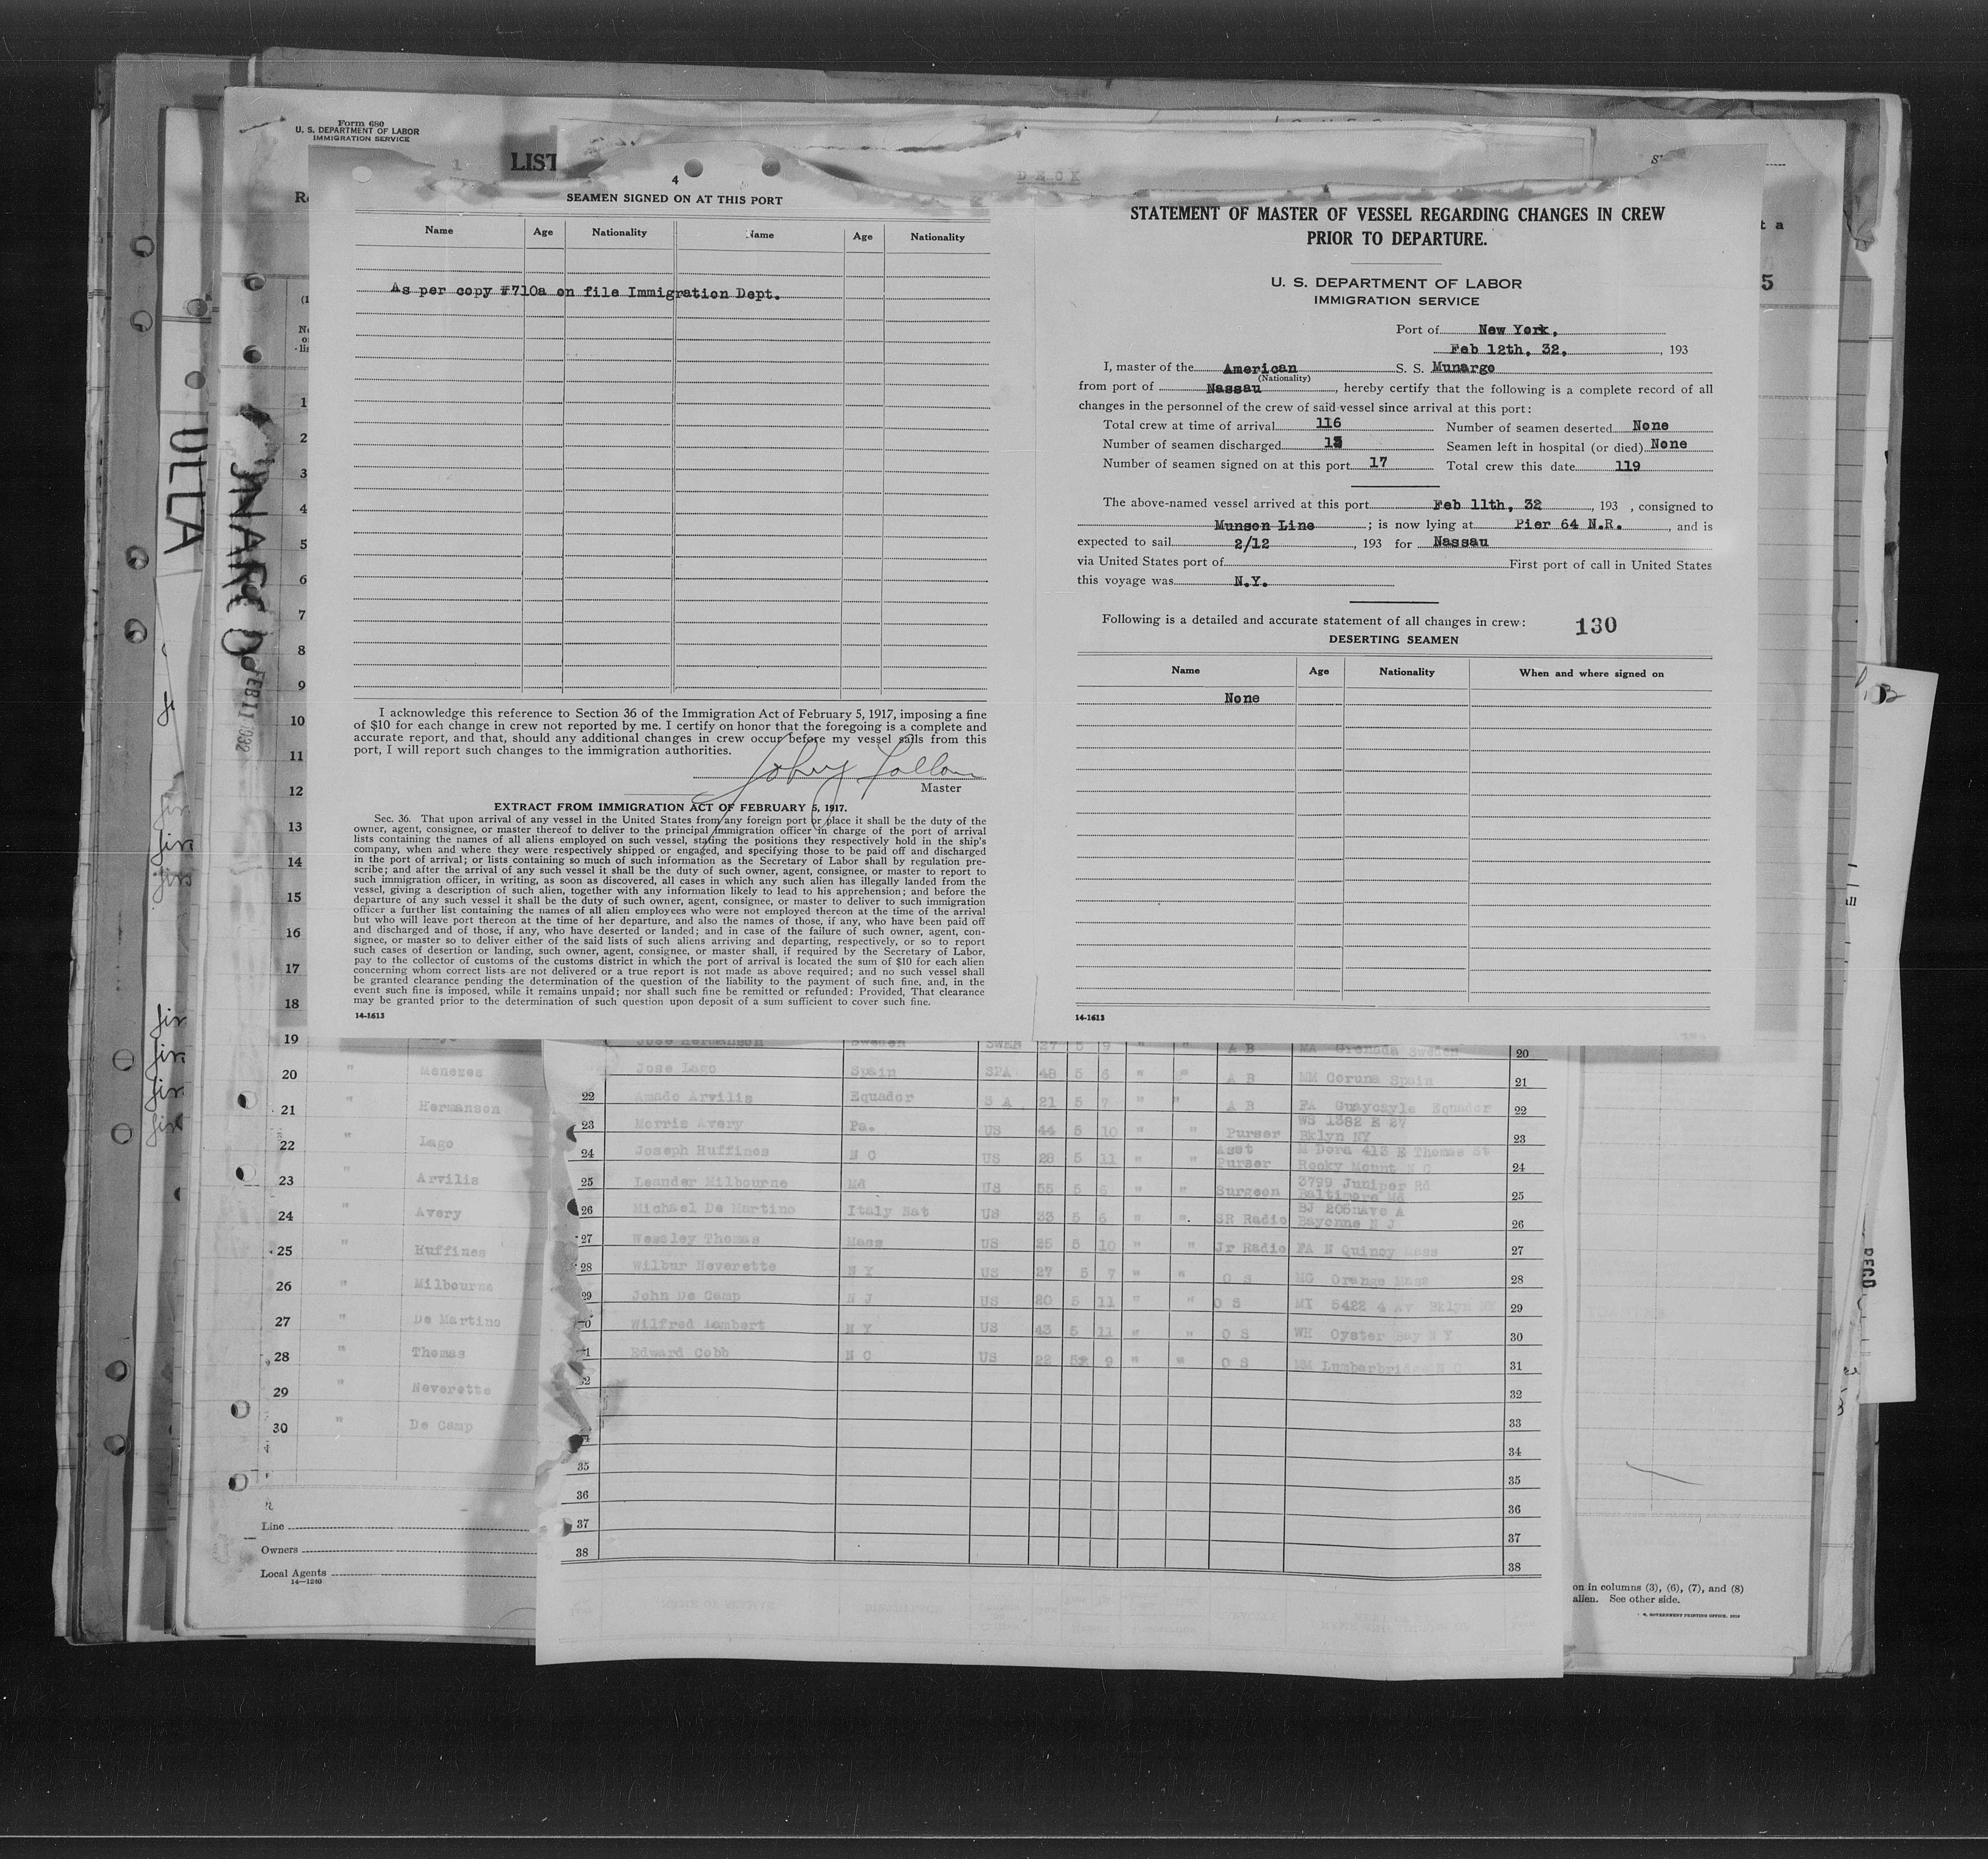 Form 680
U. S. DEPARTMENT OF LABOR
IMMIGRATION SERVICE
LIST
DECK
4
SEAMEN SIGNED ON AT THIS PORT
Name Age Nationality Name Age Nationality
As per copy #710a on file Immigration Dept.
I acknowledge this reference to Section 36 of the Immigration Act of February 5, 1917, imposing a fine
of $10 for each change in crew not reported by me. I certify on honor that the foregoing is a complete and
accurate report, and that, should any additional changes in crew occur before my vessel sails from this
port, I will report such changes to the immigration authorities.
Master
EXTRACT FROM IMMIGRATION ACT OF FEBRUARY 5, 1917.
Sec. 36. That upon arrival of any vessel in the United States from any foreign port or place it shall be the duty of the
owner, agent, consignee, or master thereof to deliver to the principal immigration officer in charge of the port of arrival
lists containing the names of all aliens employed on such vessel, stating the positions they respectively hold in the ship's
company, when and where they were respectively shipped or engaged, and specifying those to be paid off and discharged
in the port of arrival; or lists containing so much of such information as the Secretary of Labor shall by regulation pre-
scribe; and after the arrival of any such vessel it shall be the duty of such owner, agent, consignee, or master to report to
such immigration officer, in writing, as soon as discovered, all cases in which any such alien has illegally landed from the
vessel, giving a description of such alien, together with any information likely to lead to his apprehension; and before the
departure of any such vessel it shall be the duty of such owner, agent, consignee, or master to deliver to such immigration
officer a further list containing the names of all alien employees who were not employed thereon at the time of the arrival
but who will leave port thereon at the time of her departure, and also the names of those, if any, who have been paid off
and discharged and of those, if any, who have deserted or landed; and in case of the failure of such owner, agent, con-
signee, or master so to deliver either of the said lists of such aliens arriving and departing, respectively, or so to report
such cases of desertion or landing, such owner, agent, consignee, or master shall, if required by the Secretary of Labor,
pay to the collector of customs of the customs district in which the port of arrival is located the sum of $10 for each alien
concerning whom correct lists are not delivered or a true report is not made as above required; and no such vessel shall
be granted clearance pending the determination of the question of the liability to the payment of such fine, and, in the
event such fine is imposed, while it remains unpaid; nor shall such fine be remitted or refunded: Provided, That clearance
may be granted prior to the determination of such question upon deposit of a sum sufficient to cover such fine.
14-1613
STATEMENT OF MASTER OF VESSEL REGARDING CHANGES IN CREW
PRIOR TO DEPARTURE.
U. S. DEPARTMENT OF LABOR
IMMIGRATION SERVICE
Port of New York,
Feb 12th, 32, , 193
I, master of the American S. S. Munargo
(Nationality)
from port of Nassau, hereby certify that the following is a complete record of all
changes in the personnel of the crew of said vessel since arrival at this port:
Total crew at time of arrival 116 Number of seamen deserted None
Number of seamen discharged Seamen left in hospital (or died) None
Number of seamen signed on at this port 17 Total crew this date 119
The above-named vessel arrived at this port Feb 11th, 32, 193 , consigned to
Munson Line ; is now lying at Pier 64 N.R., and is
expected to sail 2/12, 193 for Nassau
via United States port of First port of call in United States
this voyage was N.Y.
Following is a detailed and accurate statement of all changes in crew: 130
DESERTING SEAMEN
Name Age Nationality When and where signed on
None
14-1613
FEB 11 1932
1
2
3
4
5
6
7
8
9
10
11
12
13
14
15
16
17
18
19
20 " Menezes
21 " Hermanson
22 " Lago
23 " Arvilis
24 " Avery
25 " Huffines
26 " Milbourne
27 " De Martino
28 " Thomas
29 " Neverette
30 " De Camp
Line
Owners
Local Agents
14—1240
Jose Hermanson Sweden SWEN 27 5 9 " " A B MA Grenada Sweden 20
Jose Lago Spain SPA 48 5 6 " " A B MM Coruna Spain 21
22 Amado Arvilis Equador S A 21 5 7 " " A B FA Guayoayle Equador 22
23 Morris Avery Pa. US 44 5 10 " " Purser WS 1382 E 27 Bklyn NY 23
24 Joseph Huffines N C US 28 5 11 " " Asst Purser M Dora 413 E Thomas St Rocky Mount N C 24
25 Leander Milbourne Md US 55 5 6 " " Surgeon 3799 Juniper Rd Baltimore Md 25
26 Michael De Martino Italy Nat US 33 5 6 " " SR Radio BJ 205 Ave A Bayonne N J 26
27 Wessley Thomas Mass US 25 5 10 " " Jr Radio FA N Quincy Mass 27
28 Wilbur Neverette N Y US 27 5 7 " " O S MG Orange Mass 28
29 John De Camp N J US 20 5 11 " " O S MI 5422 4 Av Bklyn NY 29
Wilfred Lambert N Y US 43 5 11 " " O S WH Oyster Bay N Y 30
Edward Cobb N C US 22 9 " " O S MM Lumberbridge N C 31
32
33
34
35 35
36 36
37 37
38 38
on in columns (3), (6), (7), and (8)
alien. See other side.